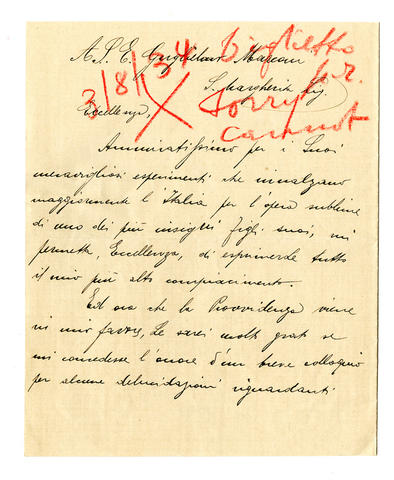 A S. E. Guglielmo Marconi
S. Margherita Lig.
3/8/34 biglietto
sorry
cannot
Eccellenza,
Ammiratissimo per i Suoi
meravigliosi esperimenti che innalzano
maggiormente l'Italia per l'opera sublime
di uno dei più insigni figli suoi, mi
permetta, Eccellenza, di esprimerle tutto
il mio più alto compiacimento.
Ed ora che la Provvidenza viene
in mio favore, Le sarei molto grato se
mi concedesse l'onore d'un breve colloquio
per alcune delucidazioni riguardanti